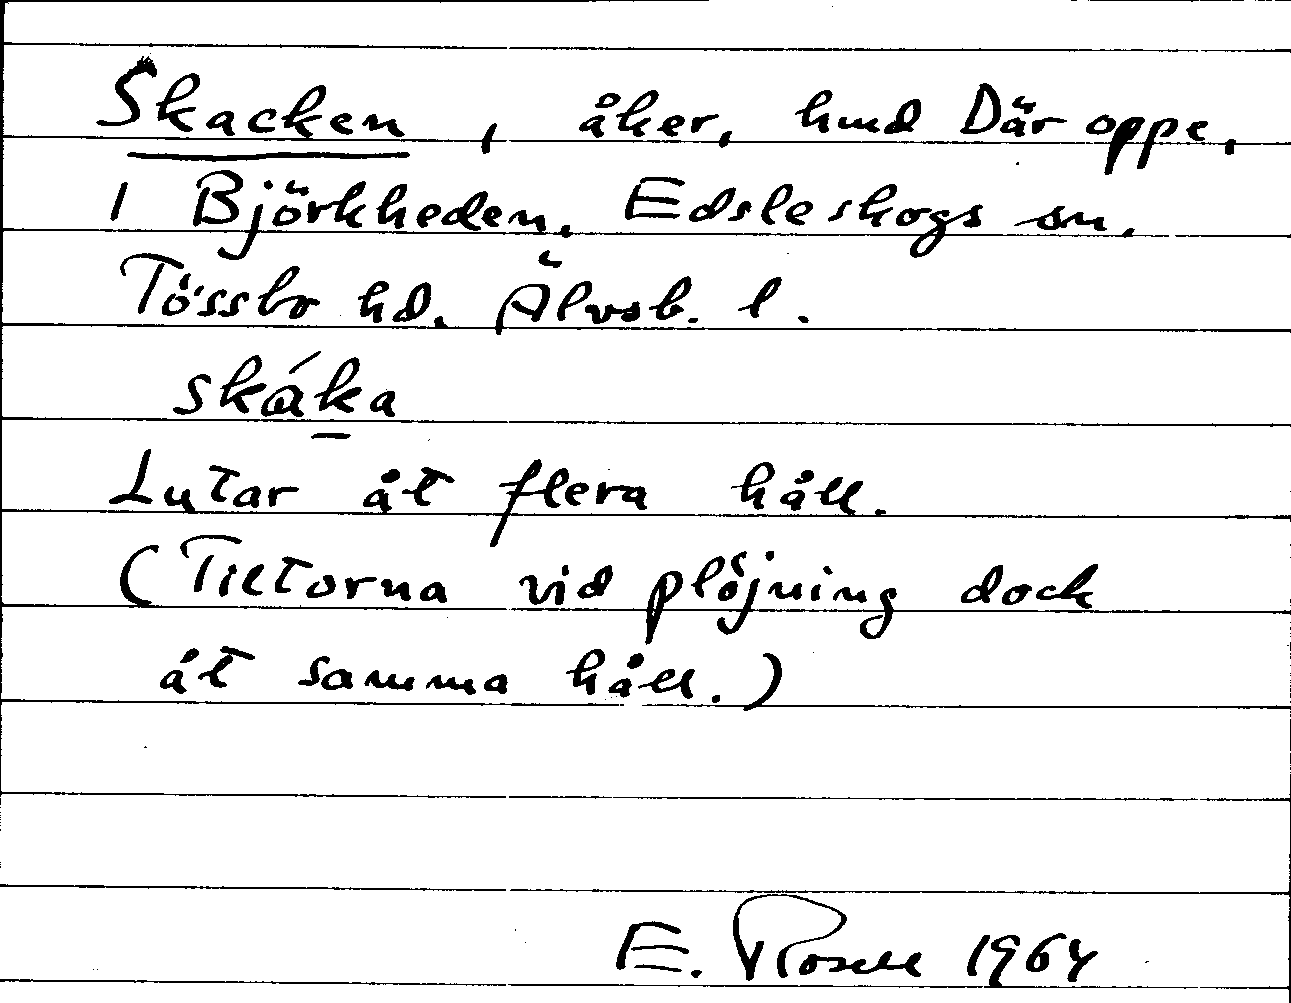 Skacken, åker, hmd Där oppe,
i Björkheden, Edsleskogs sn.
Tössbo hd. Älvsb. l.
skáka
Lutar åt flera håll.
(Tiltorna vid plöjning dock
åt samma håll.)
E. Rosell 1964